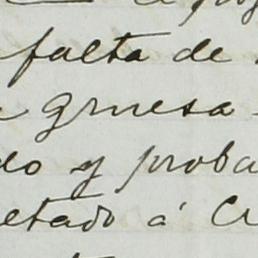 falta de
gruesa
do y proba
etado á